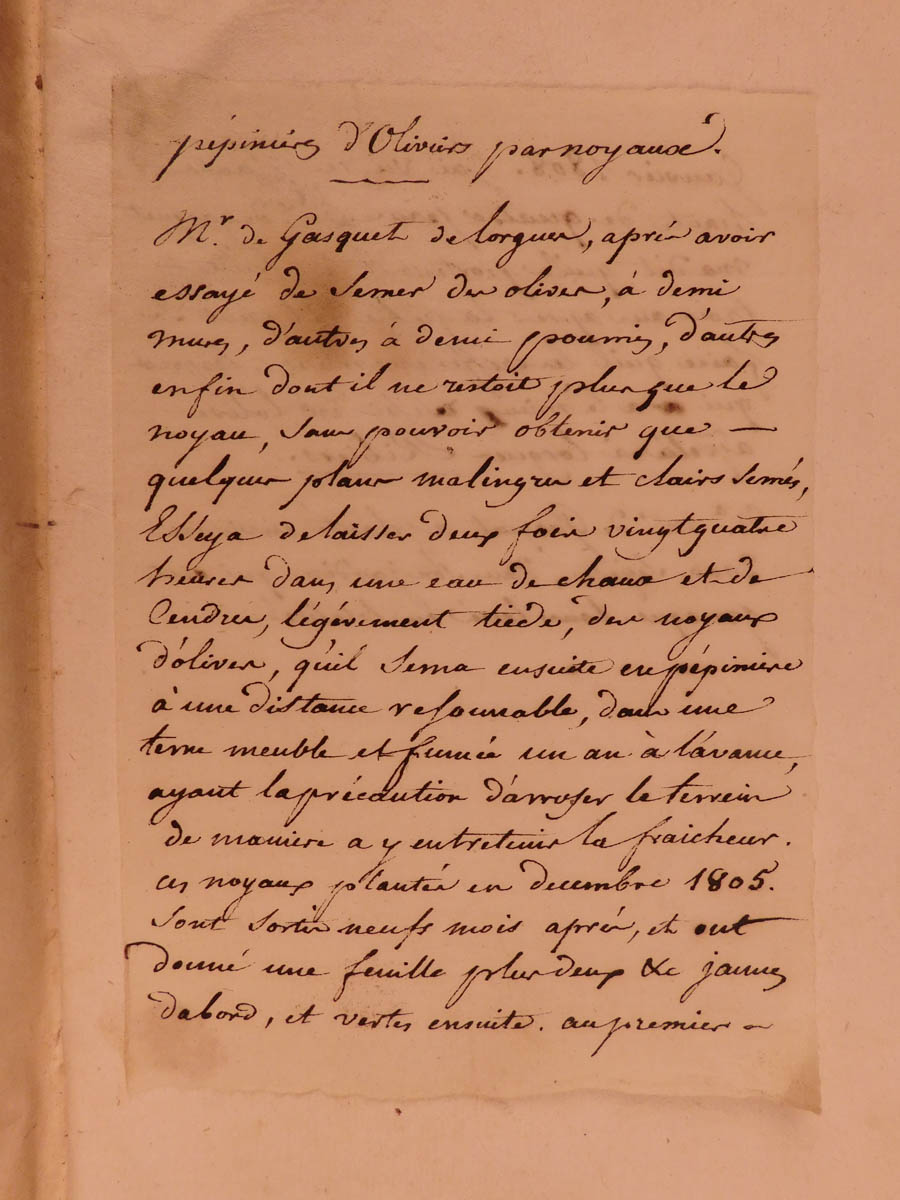 pépinieres d'Oliviers par noyaux.
Mr. de Gasquet de lorgues, aprés avoir
essayé de semer des olives, à demi
mures, d'autres à demi pourries, d'autres
enfin dont il ne restoit plus que le
noyau, sans pouvoir obtenir que —
quelques plans malingres et clairs semés,
Esseya de laisser deux fois vingt quatre
heures dans une eau de chaux et de
Cendres, légérement tiéde, des noyaux
d'olives, qu'il sema ensuite en pépiniere
à une distance resonnable, dans une
terre meuble et fumée un an à l'avance,
ayant la précaution d'arroser le terrein
de maniere a y entretenir la fraicheur.
ces noyaux plantés en decembre 1805.
sont sortis neufs mois aprés, et ont
donné une feuille plus deux &c jaunes
dabord, et vertes ensuite. au premier —